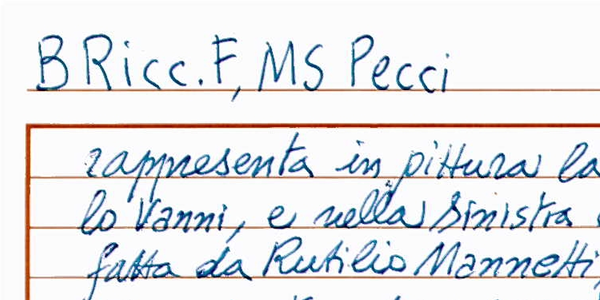 B Ricc. F, MS Pecci
rappresenta in pittura la
lo Vanni, e nella sinistra
fatta da Rutilio Mannetti,